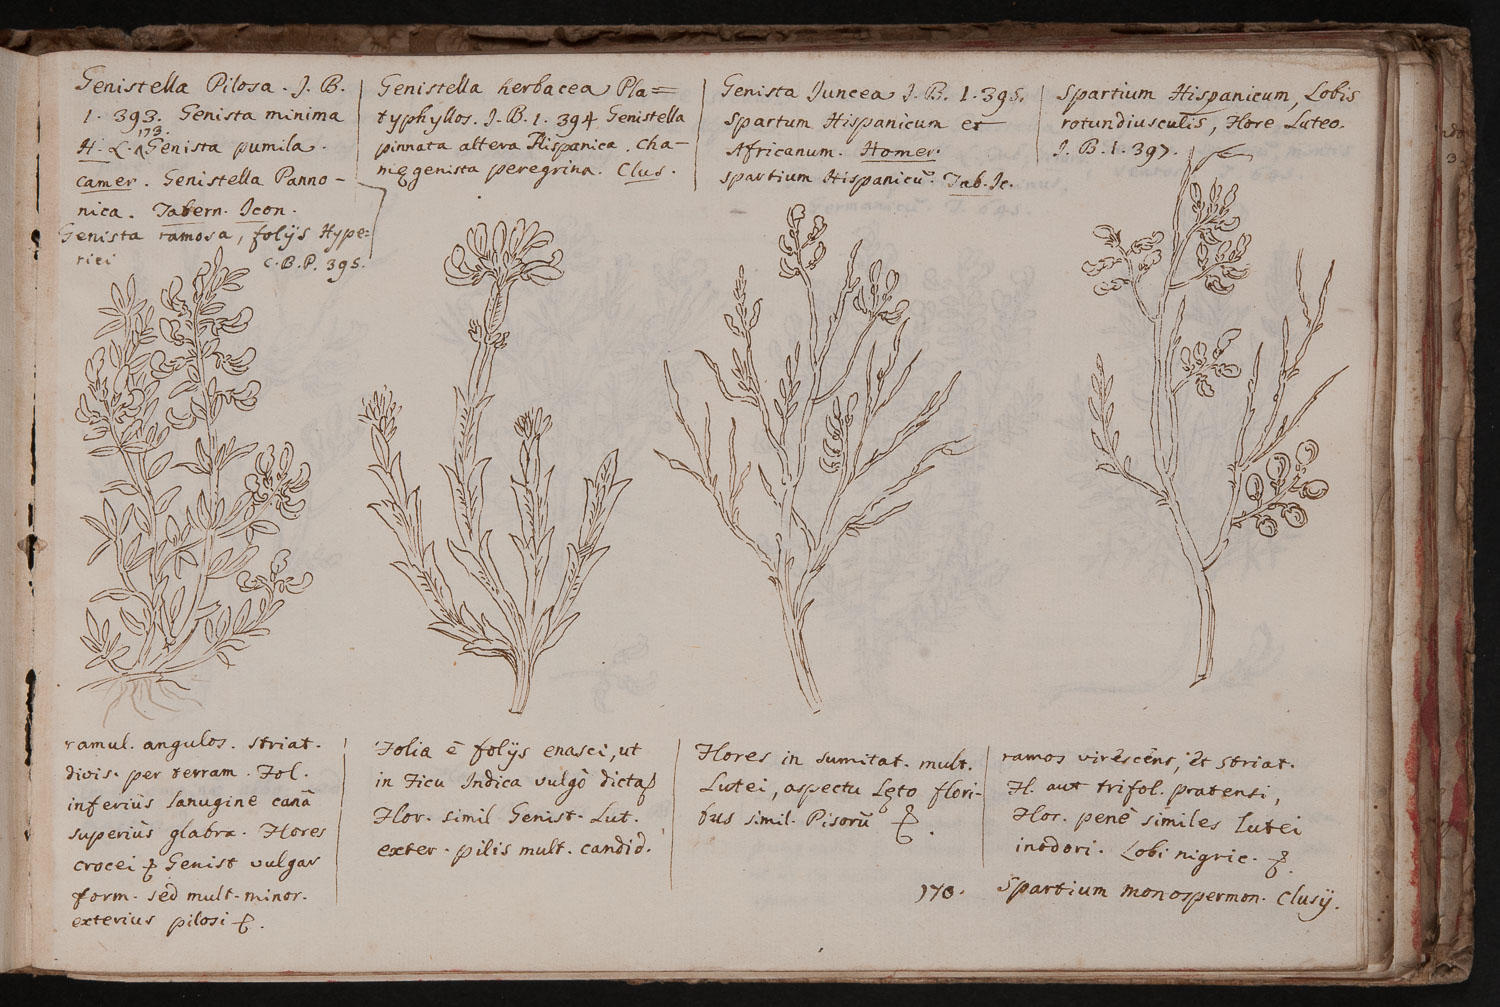 Genistella Pilosa. J. B.
1. 393. Genista minima
H. L. 173. Genista pumila.
camer. Genistella Panno-
nica. Tabern. Icon.
Genista ramosa, folijs Hype=
rici C.B.P. 395.
Genistella herbacea Pla=
typhyllos. J.B. 1. 394 Genistella
pinnata altera Hispanica. Cha-
męgenista peregrina. Clus.
Genista Juncea J.B. 1. 395.
Spartum Hispanicum et
Africanum. Homer.
Spartium Hispanicū. Tab. Ic.
Spartium Hispanicum, Lobis
rotundiusculis, Flore Luteo.
J. B. 1. 397.
ramul. angulos. striat.
divis. per terram. Fol.
inferiùs lanugine canâ
superiùs glabra. Flores
crocei Genist vulgar
form. sed mult. minor.
exterius pilosi
Folia è folijs enasci, ut
in Ficu Indica vulgò dicta
Flor. simil Genist. Lut.
exter. pilis mult. candid.
Flores in sumitat. mult.
Lutei, aspectu Lęto flori-
bus simil. Pisorū
ramos virescēns, et striat.
Fl. aut trifol. pratensi,
Flor. penè similes lutei
inodori. Lobi nigric.
178. Spartium monospermon. Clusij.